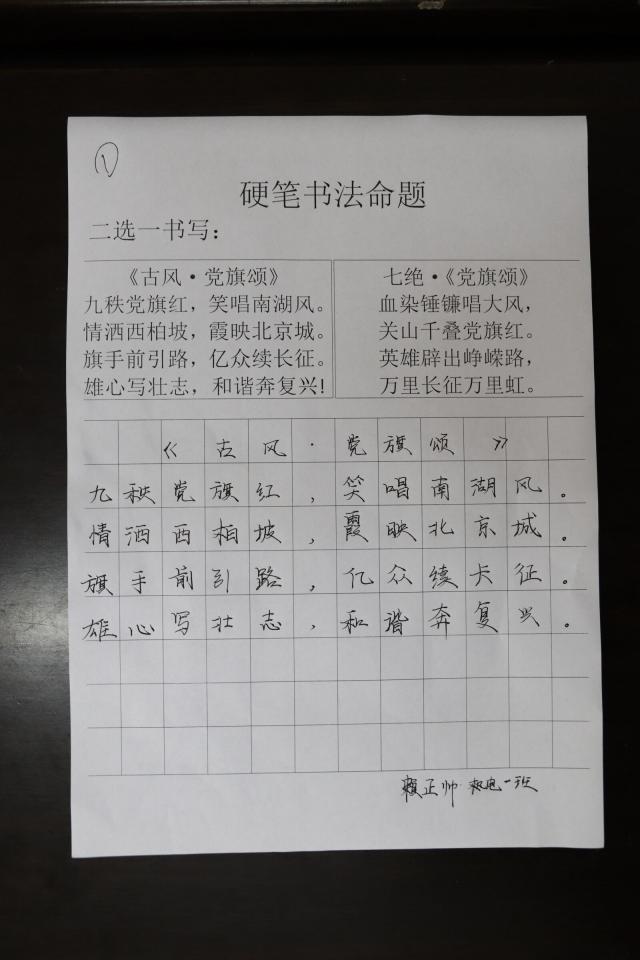 ①
硬笔书法命题
二选一书写：
《古风·党旗颂》
九秩党旗红，笑唱南湖风。
情洒西柏坡，霞映北京城。
旗手前引路，亿众续长征。
雄心写壮志，和谐奔复兴!
七绝·《党旗颂》
血染锤镰唱大风，
关山千叠党旗红。
英雄辟出峥嵘路，
万里长征万里虹。
《古风·党旗颂》
九秩党旗红，笑唱南湖风。
情洒西柏坡，霞映北京城。
旗手前引路，亿众续长征。
雄心写壮志，和谐奔复兴。
赖正帅 机电一班